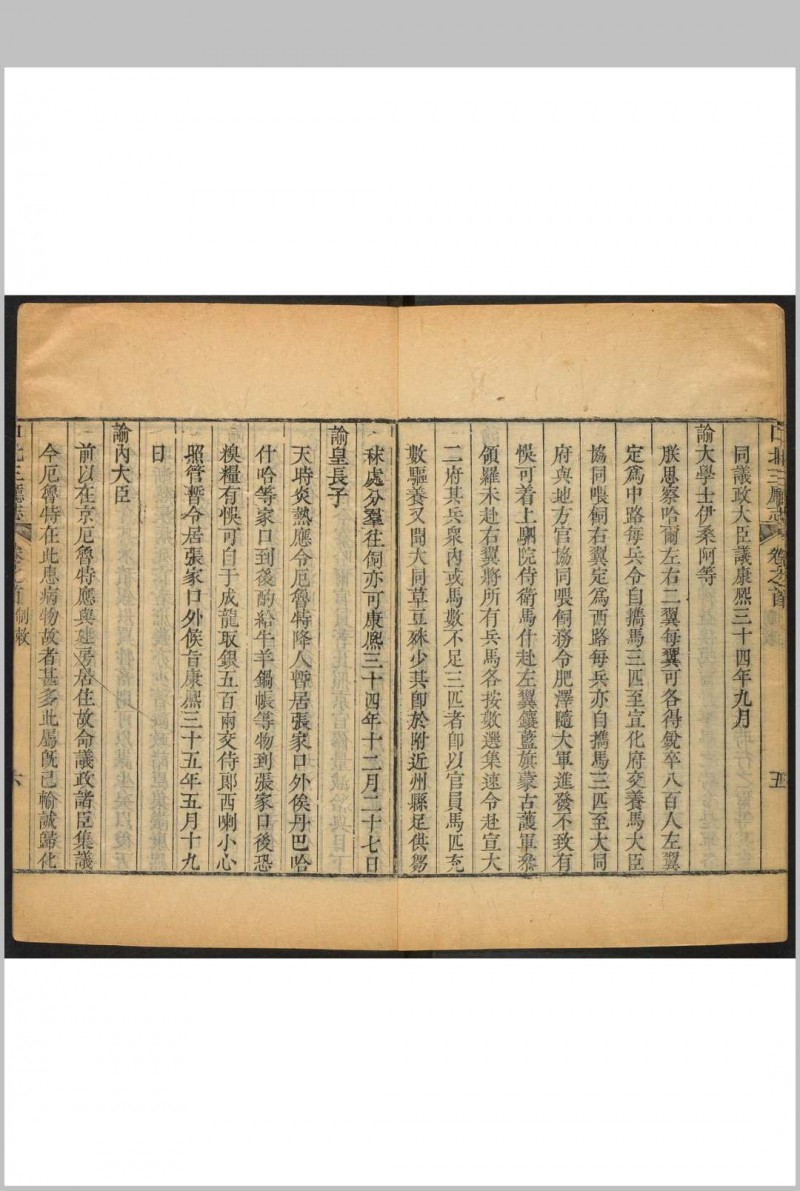 口北三廳志 卷之首 五
同議政大臣議康熙三十四年九月
諭大學士伊桑阿等
朕思察哈爾左右二翼每翼可各得銳卒八百人左翼
定為中路每兵令自攜馬三匹至宣化府交養馬大臣
協同喂飼右翼定為西路每兵亦自攜馬三匹至大同
府與地方官協同喂飼務令肥澤隨大軍進發不致有
悞可着上駟院侍衛馬什赴左翼鑲藍旗蒙古護軍叅
領羅未赴右翼將所有兵馬各按數選集速令赴宣大
二府其兵衆內或馬數不足三匹者即以官員馬匹充
數驅養又聞大同草豆殊少其即於附近州縣足供芻
秣處分羣往飼亦可康熙三十四年十二月二十七日
諭皇長子
天時炎熱應令厄魯特降人暫居張家口外俟丹巴哈
什哈等家口到後酌給牛羊鍋帳等物到張家口後恐
糗糧有悞可自于成龍取銀五百兩交侍郎西喇小心
照管暫令居張家口外候旨康熙三十五年五月十九
日
諭內大臣
前以在京厄魯特應與建房居住故命議政諸臣集議
今厄魯特在此患病物故者甚多此屬旣已輸誠歸化
口北三廳志 卷之首 制敕 六